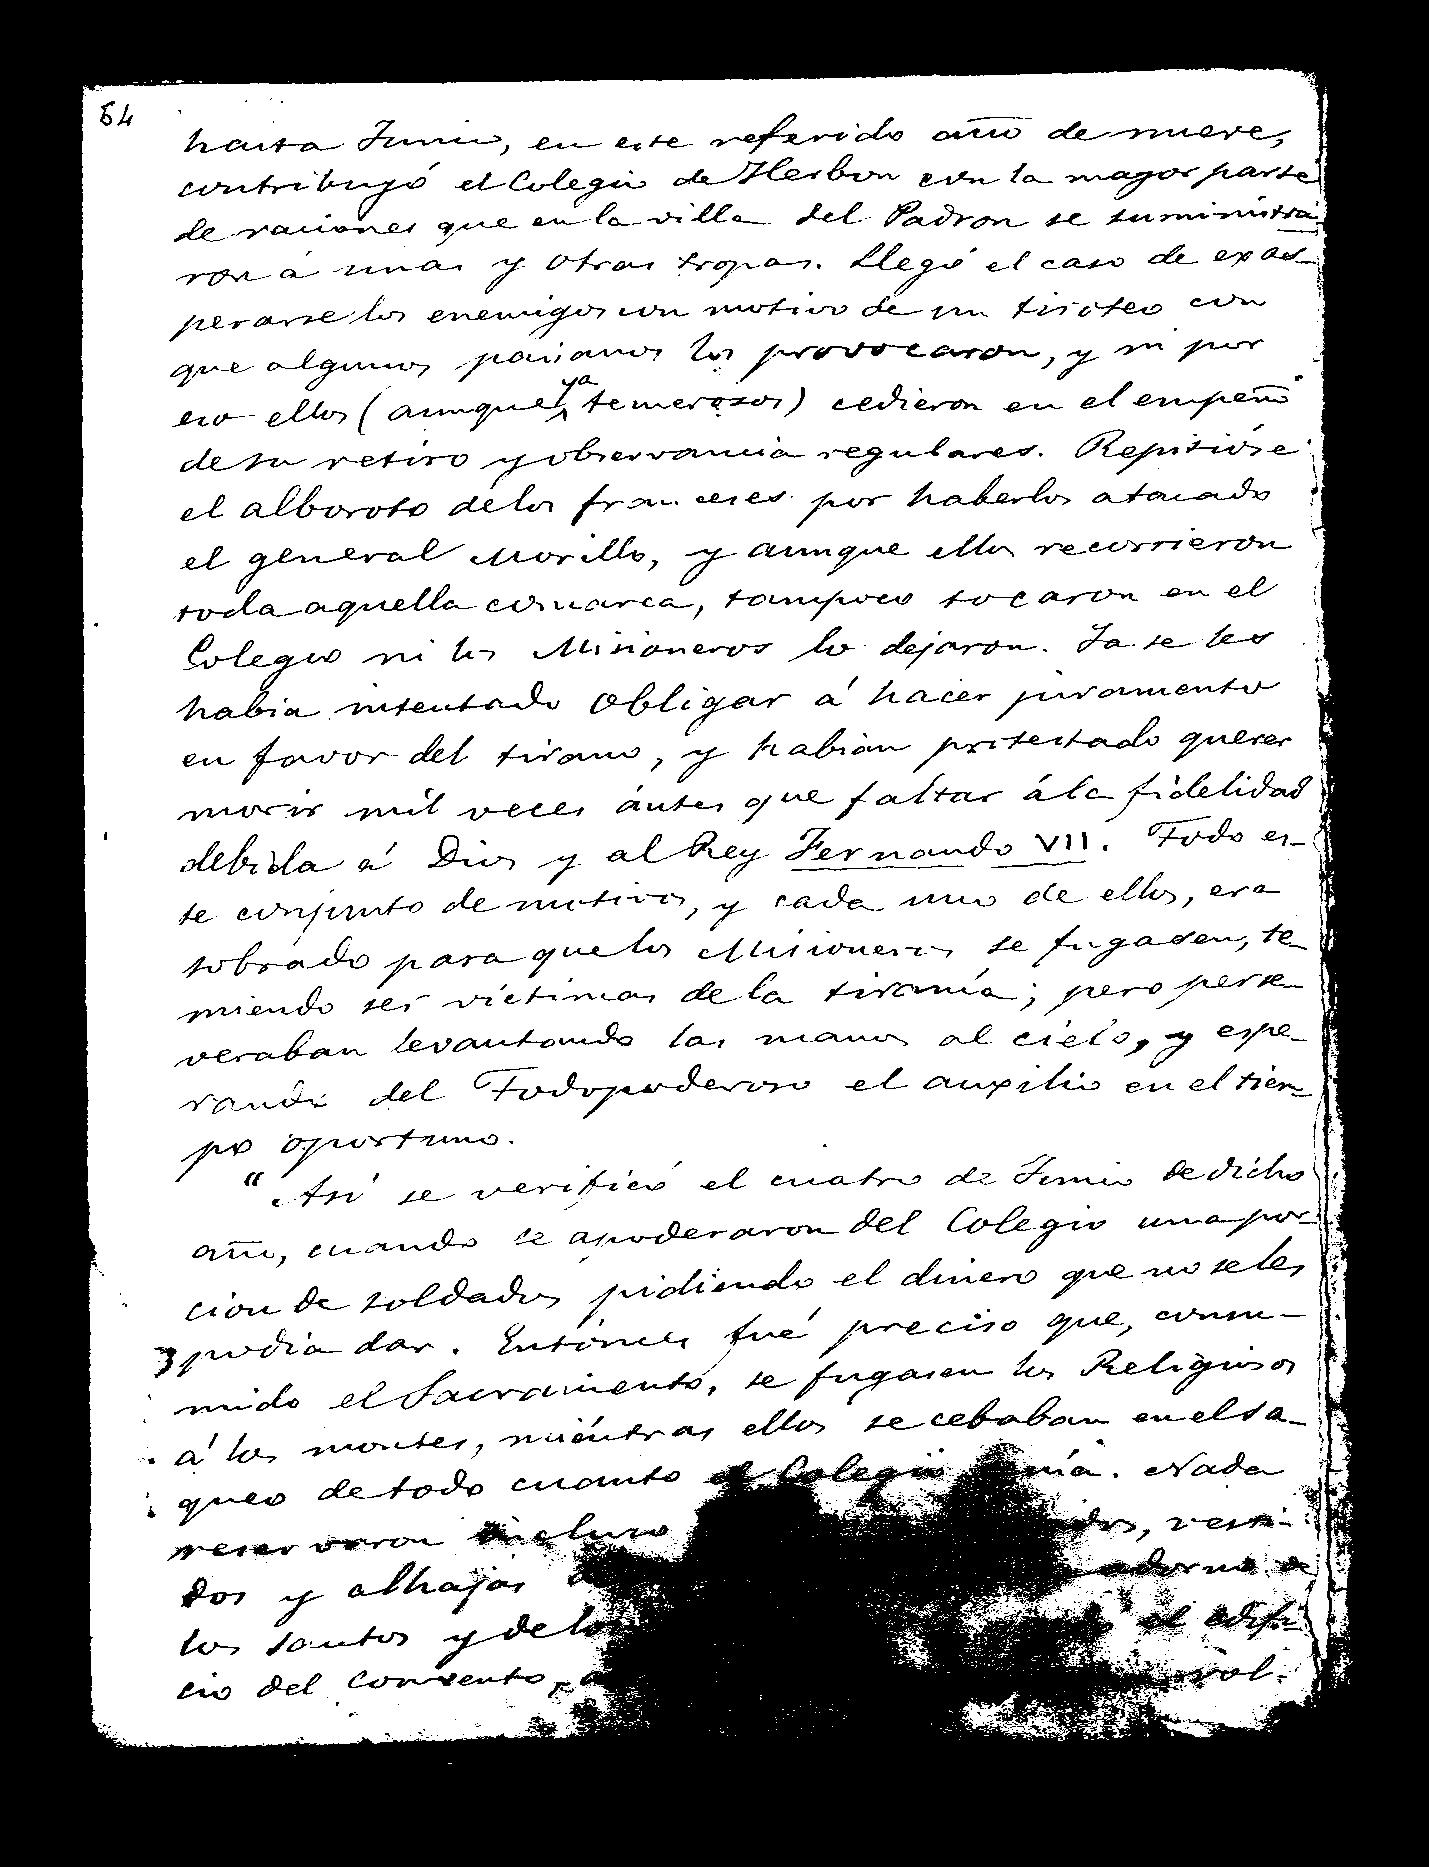 64
hasta Junio, en este referido año de nueve,
contribuyó el Colegio de Herbon con la mayor parte
de raciones que en la villa del Padron se suministra
ron á unas y otras tropas. Llegó el caso de exas-
perarse los enemigos con motivo de un tiroteo con
que algunos paisanos los provocaron, y ni por
eso ellos (aunque ya temerosos) cedieron en el empeño
de su retiro y observancia regulares. Repitióse
el alboroto de los franceses por haberlos atacado
el general Morillo, y aunque ellos recorrieron
toda aquella comarca, tampoco tocaron en el
Colegio ni los Misioneros lo dejaron. Ya se les
habia intentado obligar á hacer juramento
en favor del tirano, y habian protestado querer
morir mil veces ántes que faltar á la fidelidad
debida á Dios y al Rey Fernando VII. Todo es-
te conjunto de motivos, y cada uno de ellos, era
sobrado para que los Misioneros se fugasen, te-
miendo ser víctimas de la tiranía; pero perse-
veraban levantando las manos al cielo, y espe-
rando del Todopoderoso el auxilio en el tiem-
po oportuno.
"Así se verificó el cuatro de Junio de dicho
año, cuando se apoderaron del Colegio una por-
cion de soldados pidiendo el dinero que no se les
podia dar. Entónces fué preciso que, consu-
mido el Sacramento, se fugasen los Religiosos
á los montes, miéntras ellos se cebaban en el sa-
queo de todo cuanto el Colegio tenía. Nada
reservaron incluso vesti-
dos y alhajas adorno de
los santos y de los el edifi-
cio del convento,